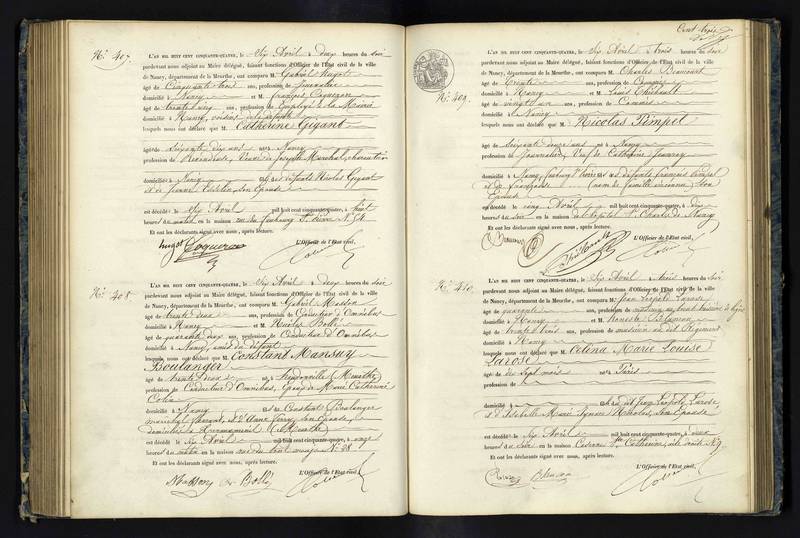 No. 407.
L'AN MIL HUIT CENT CINQUANTE-QUATRE, le Six Avril à deux heures du Soir
pardevant nous adjoint au Maire délégué, faisant fonctions d'Officier de l'État civil de la ville
de Nancy, département de la Meurthe, ont comparu M. Gabriel Hugot
âgé de Cinquante trois ans, profession de Journalier
domicilié à Nancy et M. François Coqueron
âgé de trente cinq ans, profession de Employé à la Mairie
domicilié à Nancy, voisins de la défunte
lesquels nous ont déclaré que M. Catherine Gigant
âgé de Soixante dix ans né à Nancy
profession de Revendeuse, Veuve de Joseph Marchal, charretier
domicilié à Nancy fils des défunts Nicolas Gigant
et de Jeanne son Epouse
est décédé le Six Avril mil huit cent cinquante-quatre, à huit
heures au matin en la maison rue du faubourg St. Pierre No. 54
Et ont les déclarants signé avec nous, après lecture.
L'Officier de l'État civil,
hugot Coqueron
No. 408.
L'AN MIL HUIT CENT CINQUANTE-QUATRE, le Six Avril à deux heures du Soir
pardevant nous adjoint au Maire délégué, faisant fonctions d'Officier de l'État civil de la ville
de Nancy, département de la Meurthe, ont comparu M. Gabriel Masson
âgé de trente deux ans, profession de Conducteur d'Omnibus
domicilié à Nancy et M. Nicolas Bollé
âgé de quarante deux ans, profession de Conducteur d'Omnibus
domicilié à Nancy, amis du défunt
lesquels nous ont déclaré que M. Constant Mansuy
Boulanger
âgé de trente deux ans né à (Meurthe)
profession de Conducteur d'Omnibus, Epoux de Marie Catherine
Colin
domicilié à Nancy fils de Constant Boulanger
maréchal ferrant, et d'Anne son épouse,
domiciliés à (Meurthe)
est décédé le Six Avril mil huit cent cinquante-quatre, à onze
heures au matin en la maison rue du No. 28
Et ont les déclarants signé avec nous, après lecture.
L'Officier de l'État civil,
Masson Bollé
Cent
No. 409.
L'AN MIL HUIT CENT CINQUANTE-QUATRE, le Six Avril à trois heures du Soir
pardevant nous adjoint au Maire délégué, faisant fonctions d'Officier de l'État civil de la ville
de Nancy, département de la Meurthe, ont comparu M. Charles Beaucourt
âgé de trente ans, profession de
domicilié à Nancy et M. Louis Thiébault
âgé de vingt un ans, profession de Commis
domicilié à Nancy
lesquels nous ont déclaré que M. Nicolas Pimpel
âgé de Soixante douze ans né à Nancy
profession de Journalier, Veuf de Catherine Jeanroy
domicilié à Nancy, faubourg St. Pierre fils des défunts François Pimpel
et de Françoise (nom de famille inconnu) son
Epouse
est décédé le cinq Avril mil huit cent cinquante-quatre, à deux
heures au soir en la maison de l'hôpital St. Charles de Nancy
Et ont les déclarants signé avec nous, après lecture.
L'Officier de l'État civil,
Thiébault
No. 410.
L'AN MIL HUIT CENT CINQUANTE-QUATRE, le Six Avril à trois heures du Soir
pardevant nous adjoint au Maire délégué, faisant fonctions d'Officier de l'État civil de la ville
de Nancy, département de la Meurthe, ont comparu M. Jean Léopold Larose
âgé de quarante ans, profession de
domicilié à Nancy et M.
âgé de trente trois ans, profession de musicien au dit Régiment
domicilié à Nancy
lesquels nous ont déclaré que M. Célina Marie Louise
Larose
âgé de dix Sept mois né à Paris
profession de
domicilié à fils du dit Jean Léopold Larose,
et d'Isabelle Marie son Epouse
est décédé le Six Avril mil huit cent cinquante-quatre, à
heures au en la maison Caserne Ste. Catherine,
Et ont les déclarants signé avec nous, après lecture.
L'Officier de l'État civil,